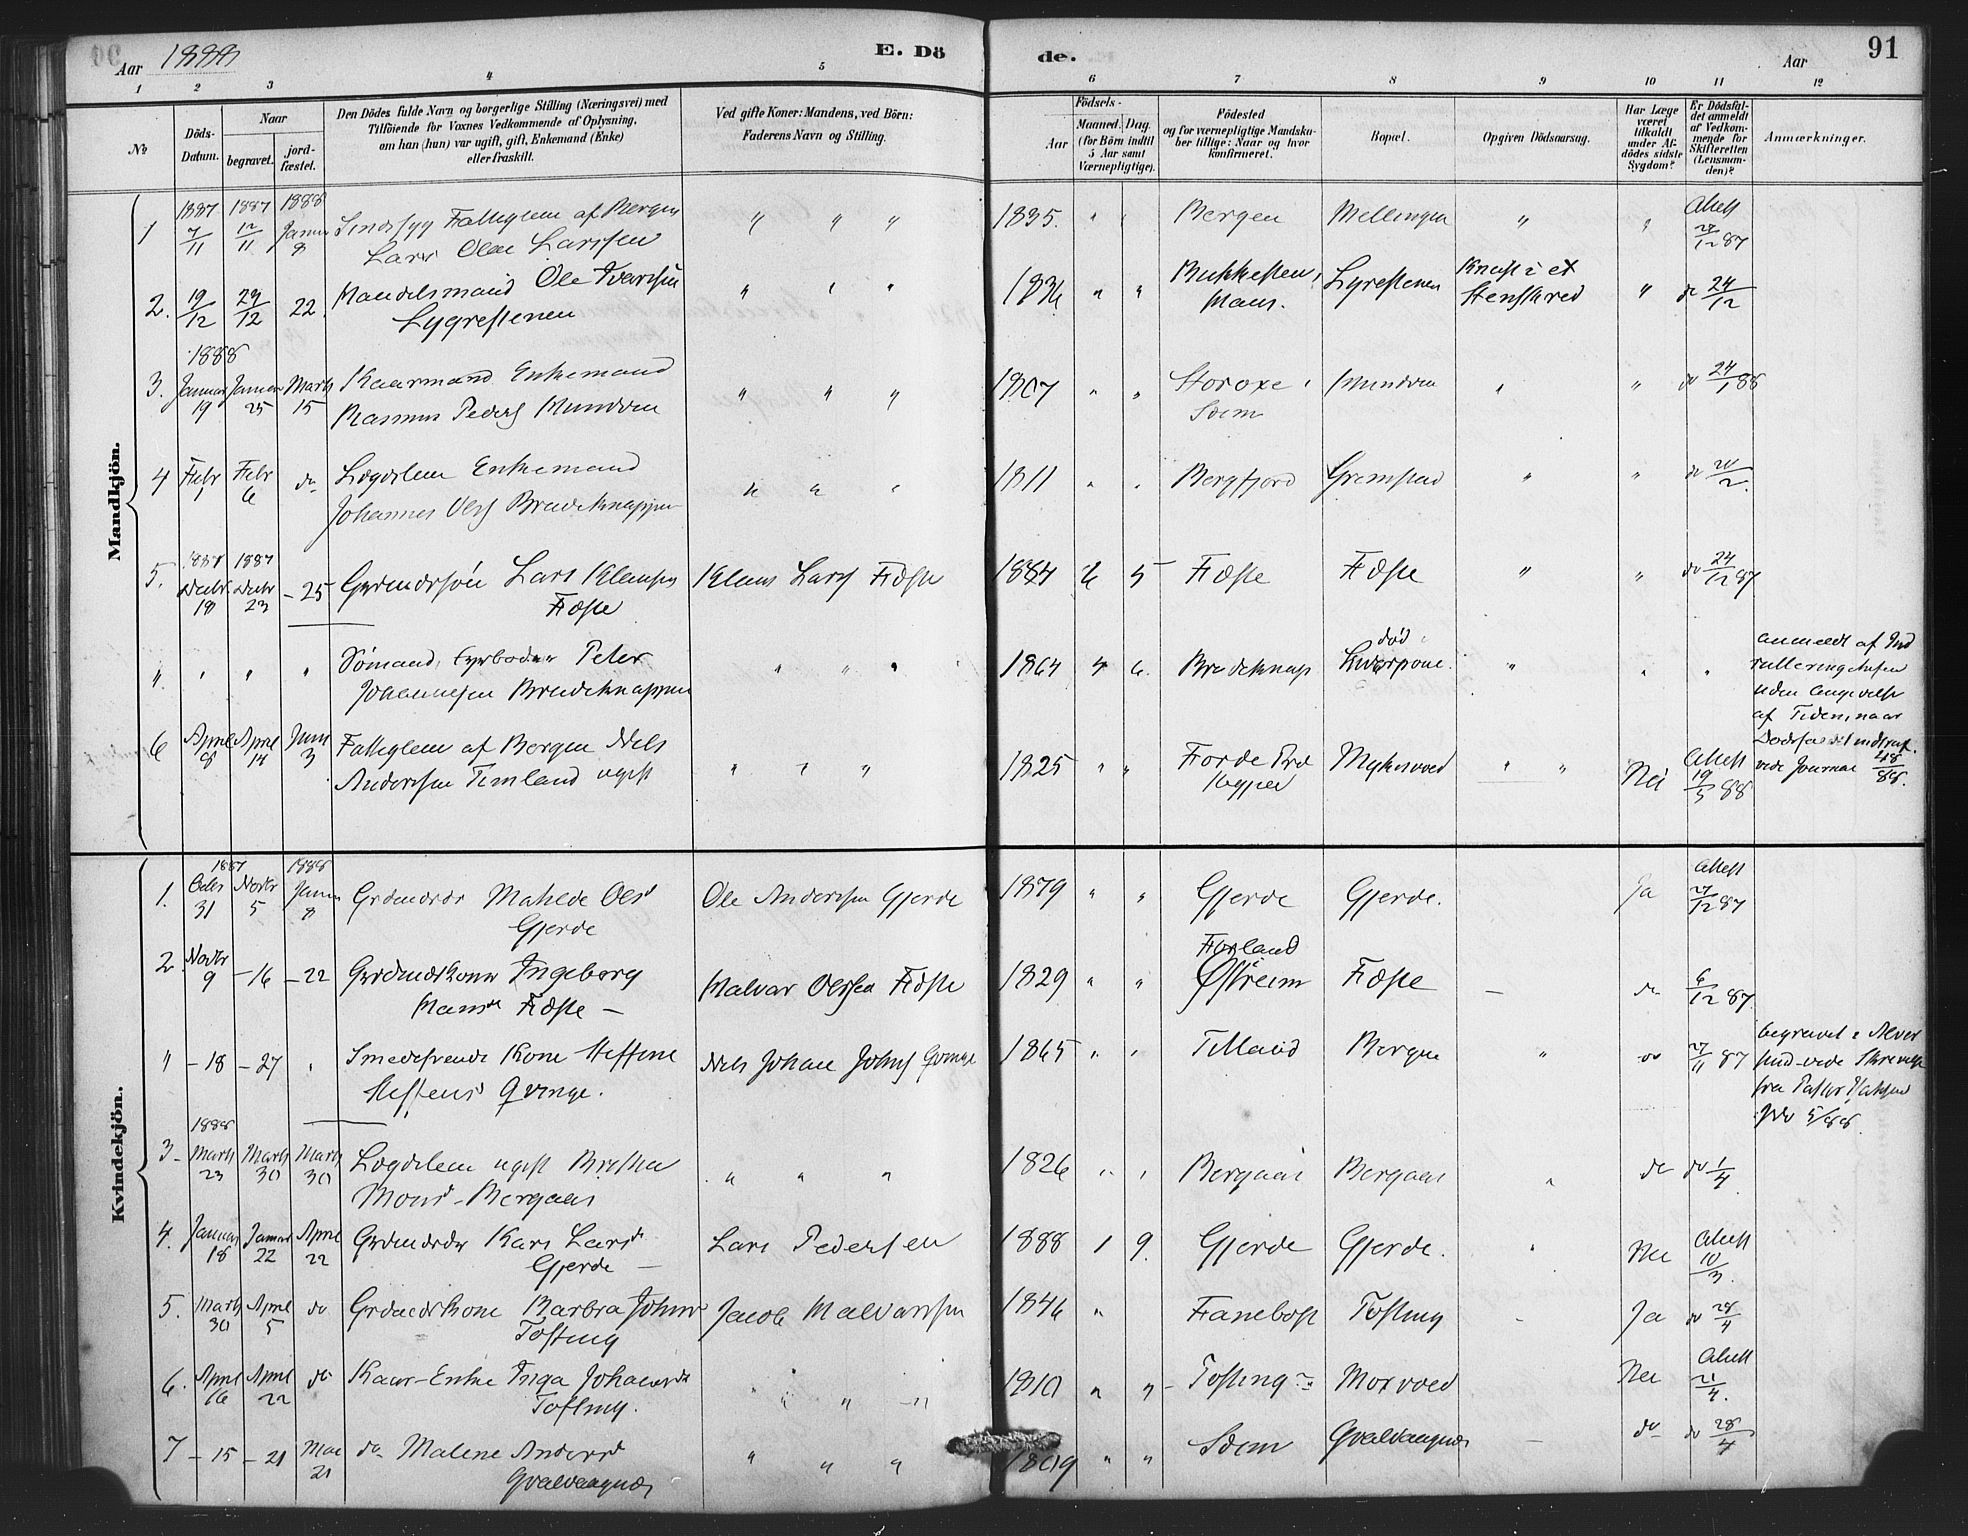 Aar 1888
E. Dö
de.
Aar
91
1 2 3 4 5 6 7 8 9 10 11 12
No
Döds-Datum.
Naar
begravet.
jordfæstet.
Den Dödes fulde Navn og borgerlige Stilling (Næringsvei) med
Tilföiende for Voxnes Vedkommende af Oplysning,
om han (hun) var ugift, gift, Enkemand (Enke)
eller fraskilt.
Ved gifte Koner: Mandens, ved Börn:
Faderens Navn og Stilling.
Födsels-
Aar
Maaned. Dag.
(for Börn indtil
5 Aar samt
Værnepligtige).
Födested
og for værnepligtige Mandska-
ber tillige: Naar og hvor
konfirmeret.
Bopæl.
Opgiven Dödsaarsag.
Har Læge
været
tilkaldt
under Af-
dödes sidste
Sygdom?
Er Dödsfal-
det anmeldt
af Vedkom-
mende for
Skifteretten
(Lensman-
den)?
Anmærkninger.
Mandkjön.
1887 1887 1888
1 7/11 12/11 Januar 8 Sindssyg Fattiglem af Bergen " " " 1835 " " Bergen Mellingen " " Attest 28/12 87
Lars Olai Larssen
2. 19/12 29/12 22 Handelsmand Ole Iversen " " " 1836 " " Lygrestenen Knust i et " do 24/12
Lygrestenen
Stenskred
1888
3. Januar 19 Januar 25 Marts 15 Kaarmand Enkemand " " " 1807 " " Mundven " " do 24/1 88
Rasmus Peders Mundven
Soeim
4 Febr 1 Febr 6 do Lægdslem Enkemand " " " 1811 " " Bergfjord Gremstad " " do 20/2
Johannes Olss Bredeknappen
1887 1887
5. Decbr. 18 Decbr 23 - 25 Grdmdssön Lars Klausen Klaus Larss Fæste 1884 5 Fæste Fæste " " do 24/12 87
Fæste
" " " " Sömand, Fyrböder Peter " " " 1864 4 6. Bredeknap död Liverpool " " "
Johannesen Bredeknappen
anmeldt af Ind
rulleringschefen
uden Angivelse
af Tiden, naar
Dödsfaldet indtraf.
vide Journal 48/88.
6 April 8 April 14 Juni 3 Fattiglem af Bergen Nels " " " 1825 " " Myksvoed " " Nei Attest 19/5 88
Anderssen Timland ugift
Kvindekjön.
1887 1888
1. Octbr 31 Novbr 5 Januar 8 Grdmdsdr Mathilde Olsd Ole Anderssen Gjerde 1879 " " Gjerde Gjerde. Ja Attest 27/12 87
Gjerde
2 Novbr 9 - 16 - 22 Grdmdskone Ingeborg Halvar Olssen Fæste 1829 " " Østreim Fæste - do 6/12 87
Hansd Fæste -
Forland
" - 18 - 27 " Smedesvends Kone Steffine Nels Johan Johns Qvinge 1865 " " Bergen " do 27/11 87
Steffensd Qvinge.
begravet i Alver
sund - vide Skrivelse
fra Pastor
5/88.
1888
3 - Marts 23 Marts 30 Marts 30 Lægdslem ugift " " " 1826 " " Bergaas Bergaas " do do 1/4
Monsd - Bergaas
4. Januar 18 Januar 22 April 22 Grdmdsdr Kari Larsd Lars Pedersen 1888 1 9. Gjerde Gjerde. " Nei Attest 10/3.
Gjerde -
5. Marts 30 April 5 do Grdmdskone Barbra Johnsd Jacob Halvarssen 1846 " Fanebost Tofting - Ja do 28/4
Tofting
6. April 16 April 22 do Kaar-Enke Inga Johannsd " " " 1810 " " - Tofting Moxvoed Nei Attest 21/4.
Tofting.
7 - 15 - 21 Mai 21 do Malene Andersd " " " 1809 " " Soeim Qvalvaagnæs - do do 28/4
Qvalvaagnæs